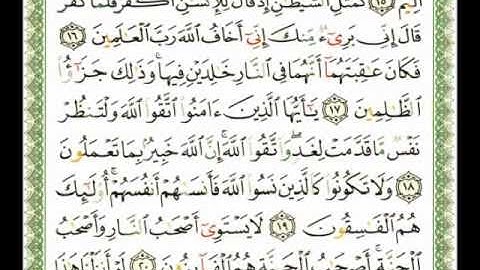 أَلِيمٌ ١٥ كَمَثَلِ ٱلشَّيْطَٰنِ إِذْ قَالَ لِلْإِنسَٰنِ ٱكْفُرْ فَلَمَّا كَفَرَ
قَالَ إِنِّي بَرِيٓءٌ مِّنكَ إِنِّيٓ أَخَافُ ٱللَّهَ رَبَّ ٱلْعَٰلَمِينَ ١٦
فَكَانَ عَٰقِبَتَهُمَآ أَنَّهُمَا فِي ٱلنَّارِ خَٰلِدَيْنِ فِيهَا ۚ وَذَٰلِكَ جَزَٰٓؤُا۟
ٱلظَّٰلِمِينَ ١٧ يَٰٓأَيُّهَا ٱلَّذِينَ ءَامَنُوا۟ ٱتَّقُوا۟ ٱللَّهَ وَلْتَنظُرْ
نَفْسٌ مَّا قَدَّمَتْ لِغَدٍ ۖ وَٱتَّقُوا۟ ٱللَّهَ ۚ إِنَّ ٱللَّهَ خَبِيرٌۢ بِمَا تَعْمَلُونَ
١٨ وَلَا تَكُونُوا۟ كَٱلَّذِينَ نَسُوا۟ ٱللَّهَ فَأَنسَىٰهُمْ أَنفُسَهُمْ ۚ أُو۟لَٰٓئِكَ
هُمُ ٱلْفَٰسِقُونَ ١٩ لَا يَسْتَوِيٓ أَصْحَٰبُ ٱلنَّارِ وَأَصْحَٰبُ
ٱلْجَنَّةِ ۚ أَصْحَٰبُ ٱلْجَنَّةِ هُمُ ٱلْفَآئِزُونَ ٢٠ لَوْ أَنزَلْنَا هَٰذَا